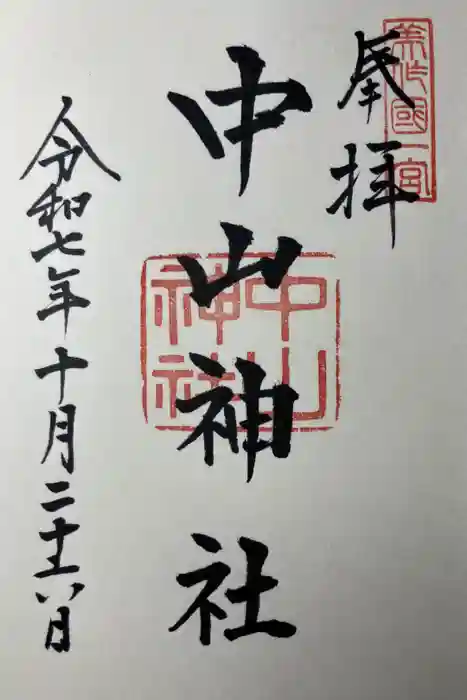 奉拝
美作國一宮
中山神社
中山神社
令和七年十月二十六日